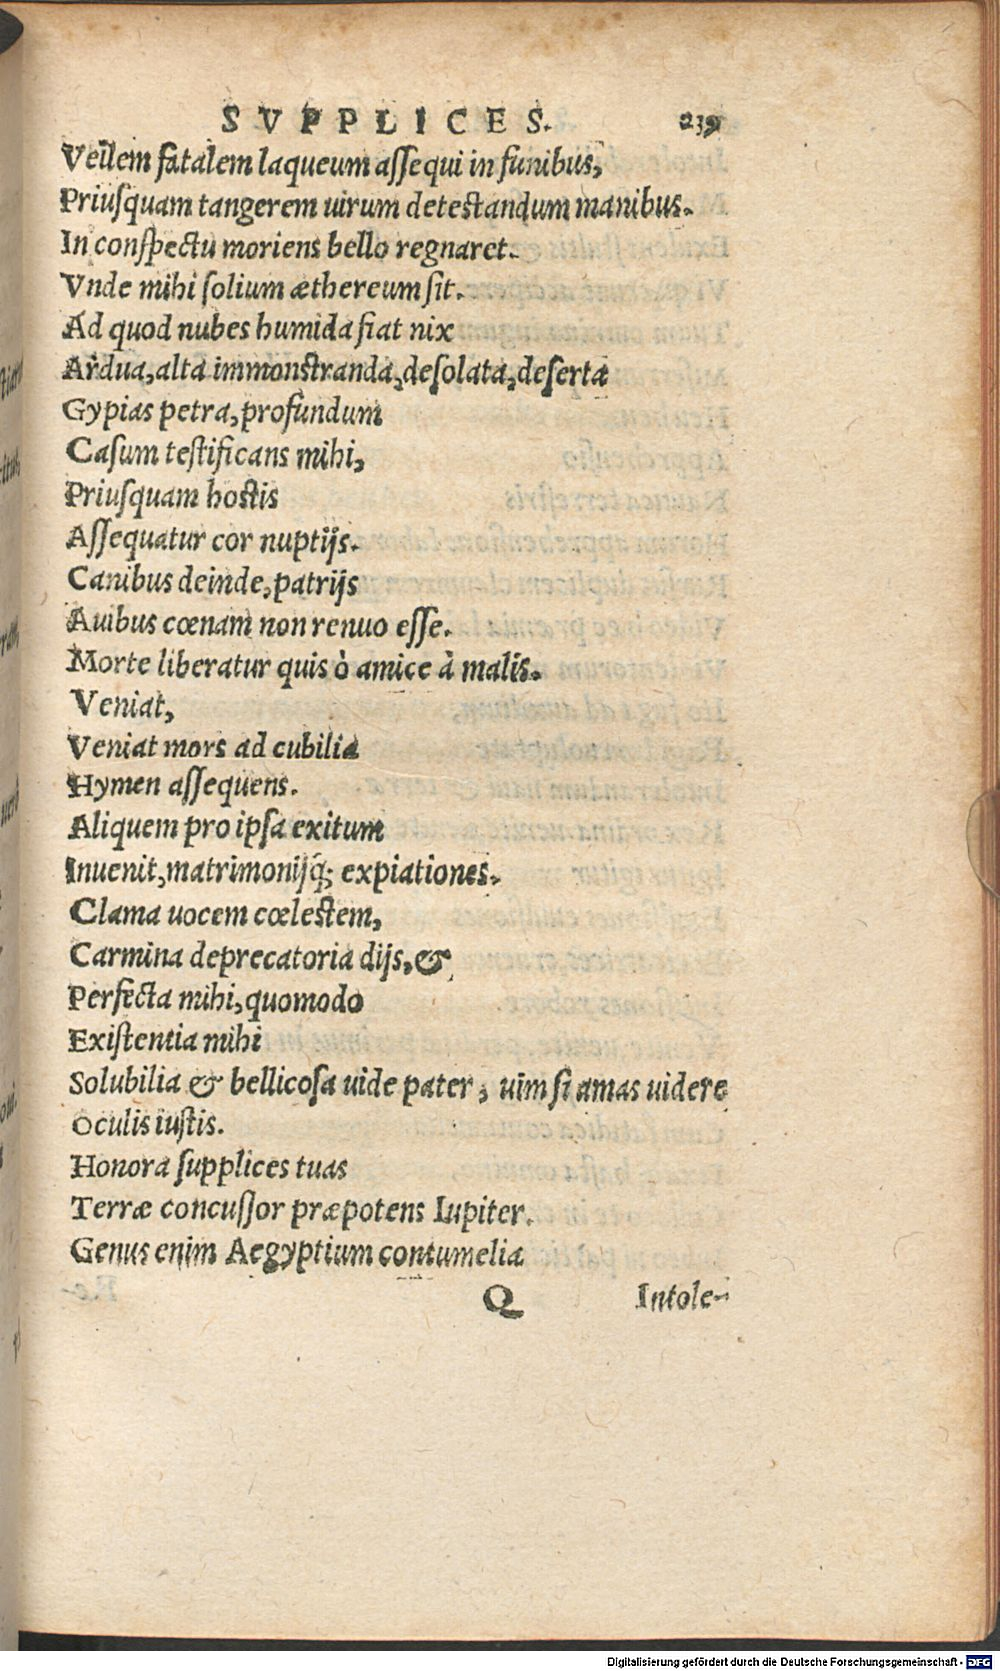 SVPPLICES. 239
Vellem fatalem laqueum aſſequi in funibus,
Priuſquam tangerem uirum deteſtandum manibus.
In conſpectu moriens bello regnaret.
Vnde mihi ſolium æthereum ſit.
Ad quod nubes humida fiat nix
Ardua, alta immonſtranda, deſolata, deſerta
Gypias petra, profundum
Caſum teſtificans mihi,
Priuſquam hoſtis
Aſſequatur cor nuptijs.
Canibus deinde, patrijs
Auibus cœnam non renuo eſſe.
Morte liberatur quis ò amice à malis.
Veniat,
Veniat mors ad cubilia
Hymen aſſequens.
Aliquem pro ipſa exitum
Inuenit, matrimonijq́; expiationes.
Clama uocem cœleſtem,
Carmina deprecatoria dijs, &
Perfecta mihi, quomodo
Exiſtentia mihi
Solubilia & bellicoſa uide pater, uim ſi amas uidere
Oculis iuſtis.
Honora ſupplices tuas
Terræ concuſſor præpotens Iupiter.
Genus enim Aegyptium contumelia
Q Intole-
Digitalisierung gefördert durch die Deutsche Forschungsgemeinschaft - DFG